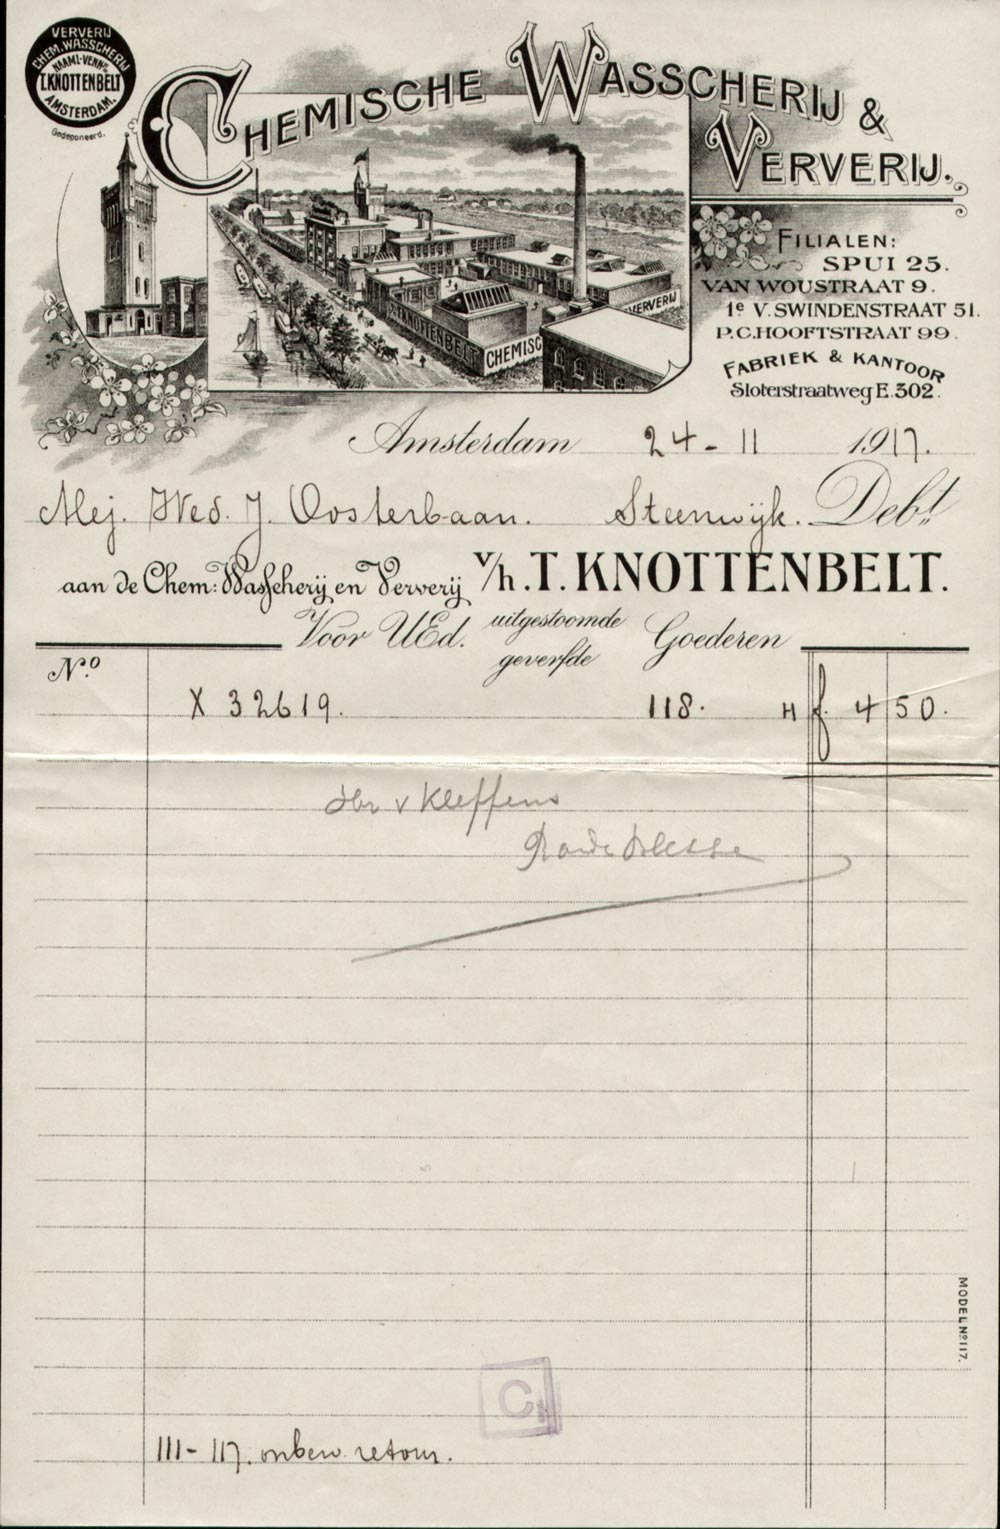 VERVERIJ
CHEM. WASSCHERIJ
NAAML-VENN.
T. KNOTTENBELT
AMSTERDAM.
Gedeponeerd.
CHEMISCHE WASSCHERIJ &
VERVERIJ.
T. KNOTTENBELT
CHEMISC
VERVERIJ
FILIALEN:
SPUI 25.
VAN WOUSTRAAT 9.
1e V. SWINDENSTRAAT 51.
P.C. HOOFTSTRAAT 99.
FABRIEK & KANTOOR
Sloterstraatweg E. 302.
Amsterdam 24-11 1917.
Mej. Wed. J. Oosterbaan. Steenwijk. Debt.
aan de Chem: Wasscherij en Ververij v/h. T. KNOTTENBELT.
Voor UEd. uitgestoomde Goederen
geverfde
No.
X 32619. 118. H f. 4 50.
v Kleffens
111-117. onbew. retour.
C
MODEL No 117.